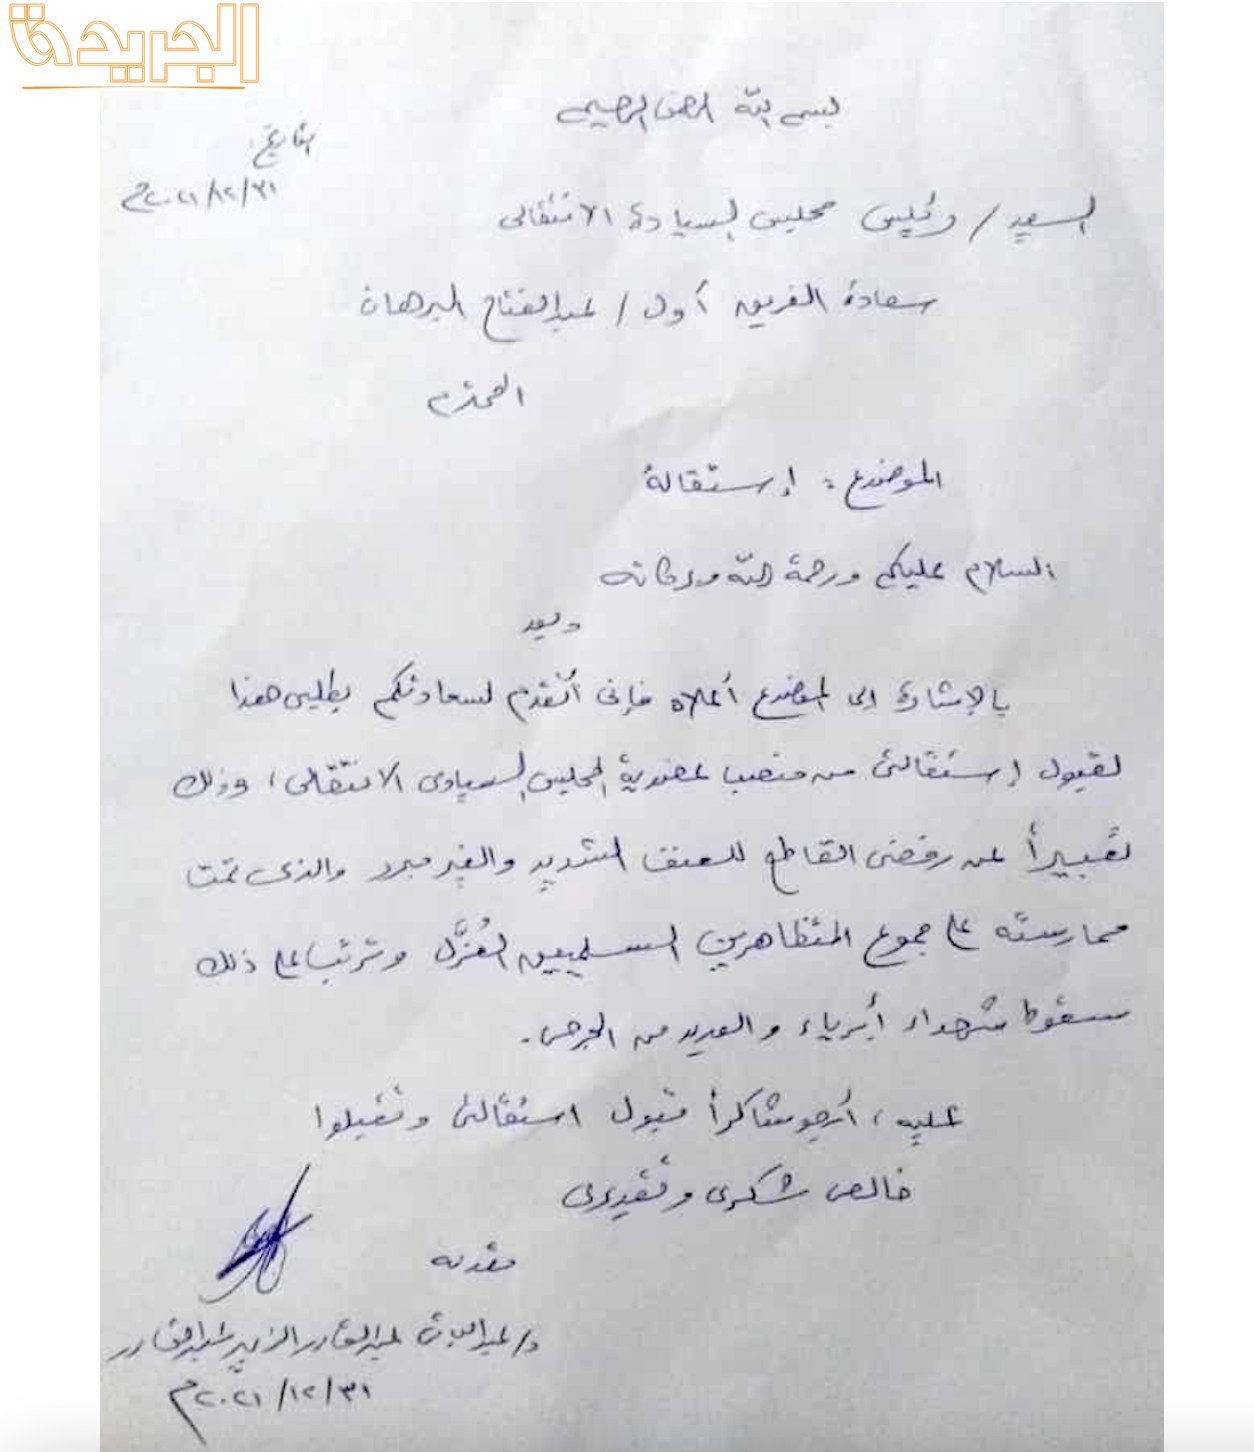 الجريدة
بسم الله الرحمن الرحيم
التاريخ:
٢٠٢١/١٢/٣١م
السيد / رئيس مجلس السيادة الانتقالى
سعادة الفريق أول / عبدالفتاح البرهان
المحترم
الموضوع : إستقالة
السلام عليكم ورحمة الله وبركاته
وبعد
بالإشارة الى الموضوع أعلاه فإنى أتقدم لسعادتكم بطلبى هذا
لقبول إستقالتى من منصب عضوية المجلس السيادى الانتقالى، وذلك
تعبيراً عن رفضى القاطع للعنف الشديد والغير مبرر والذى تمت
ممارسته على جموع المتظاهرين السلميين العُزَّل وترتب على ذلك
سقوط شهداء أبرياء والعديد من الجرحى.
عليه، أرجو شاكراً قبول استقالتى وتقبلوا
خالص شكرى وتقديرى
مقدمه
د/ عبدالباقى عبدالقادر الزبير عبدالقادر
٢٠٢١/١٢/٣١م